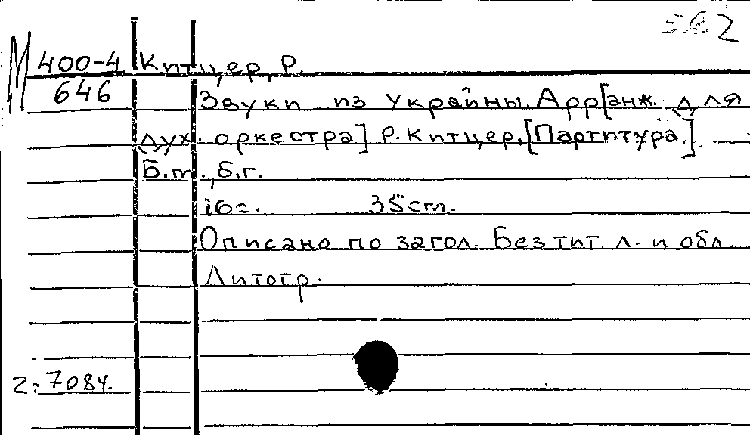 М 400-4 Китцер, Р.
646
Звуки из Украйны. Арр[анж. для
дух. оркестра] Р. Китцер. [Партитура.]
Б.м., б.г.
16с. 35см.
Описано по загол. Без тит. л. и обл.
Литогр.
2: 7084.